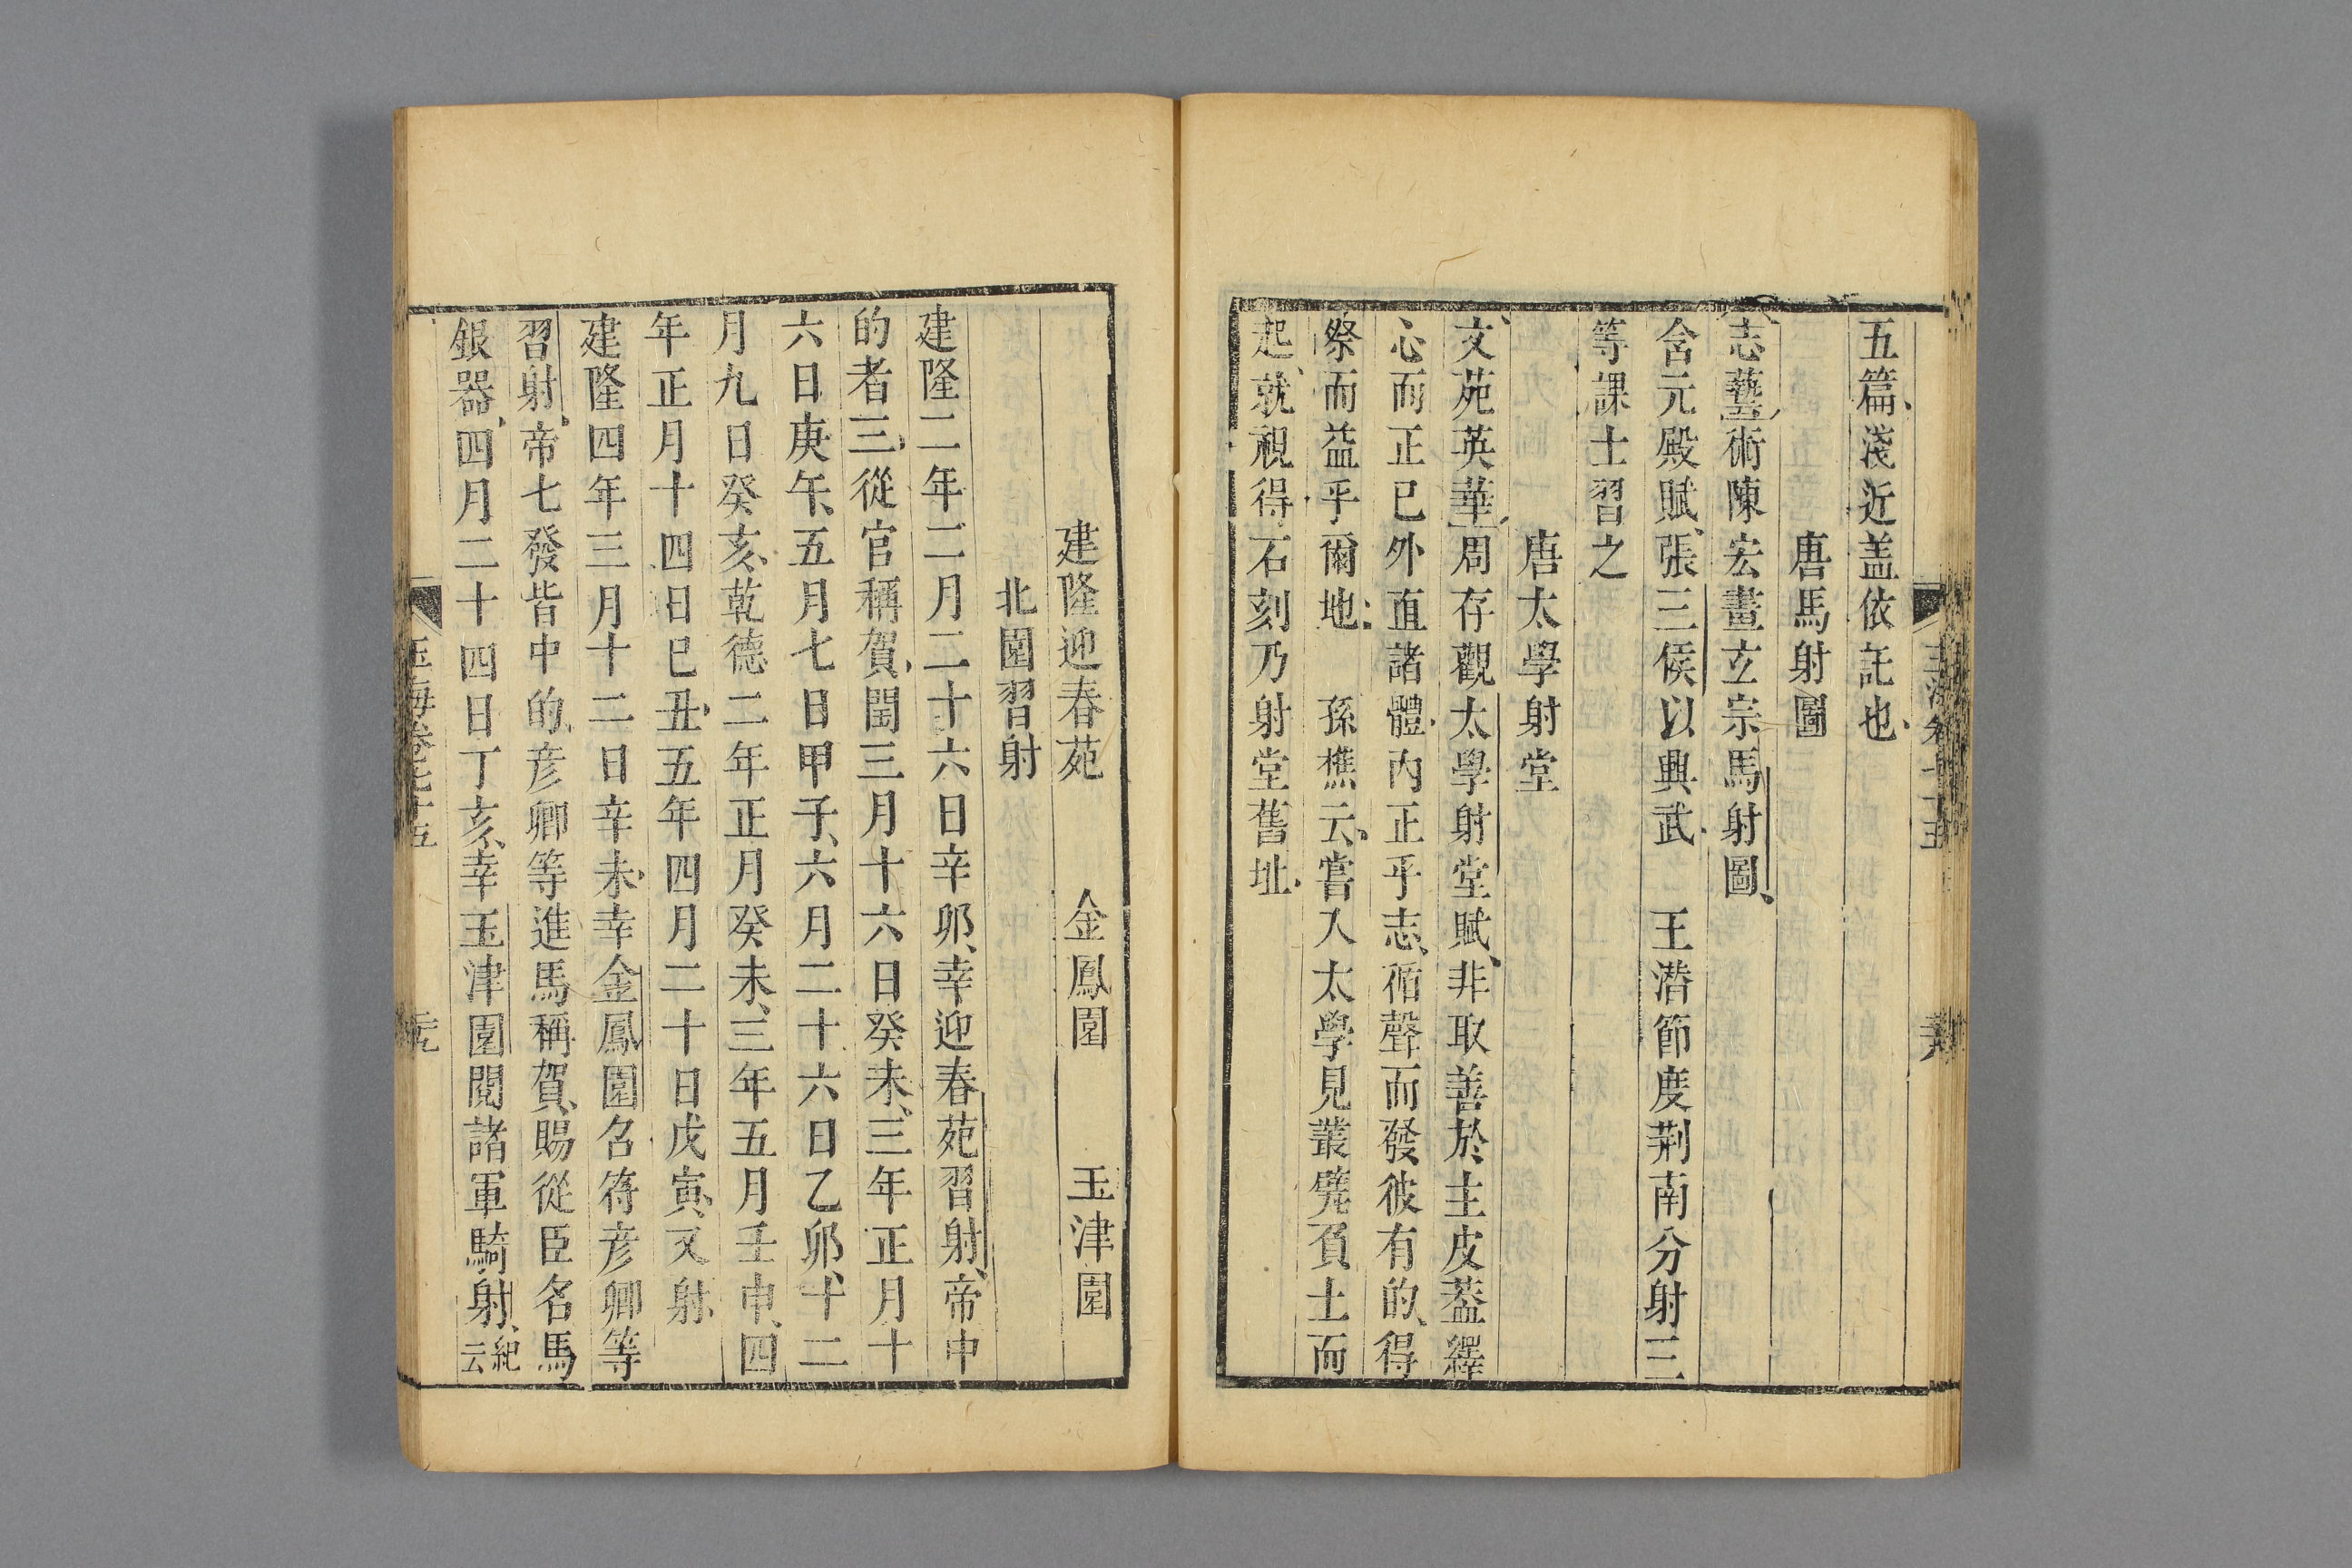 五篇淺近盖依託也
唐馬射圖
志藝術陳宏畫玄宗馬射圖
含元殿賦張三侯以興武 王潜節度荆南分射三
等課士習之
唐太學射堂
文苑英華周存觀太學射堂賦非取善於主皮葢繹
心而正已外直諸體內正乎志循聲而發彼有的得
祭而益乎爾地 孫樵云嘗入太學見叢甓負土而
起就視得石刻乃射堂舊址
建隆迎春苑 金鳳園 玉津園
北園習射
建隆二年二月二十六日辛卯幸迎春苑習射帝中
的者三從官稱賀閏三月十六日癸未三年正月十
六日庚午五月七日甲子六月二十六日乙卯十二
月九日癸亥乾德二年正月癸未三年五月壬申四
年正月十四日巳丑五年四月二十日戊寅又射
建隆四年三月十二日辛未幸金鳳園名符彦卿等
習射帝七發皆中的彦卿等進馬稱賀賜從臣名馬
銀器四月二十四日丁亥幸玉津園閱諸軍騎射紀云
玉海卷七十五